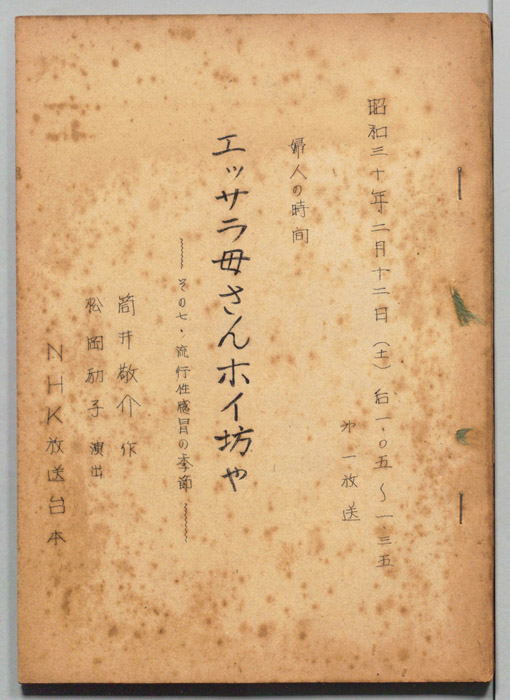 昭和三十年二月十二日（土）后一.〇五〜一.三五
第一放送
婦人の時間
エッサラ母さんホイ坊や
その七・流行性感冒の季節
筒井敬介 作
松岡励子 演出
NHK放送台本